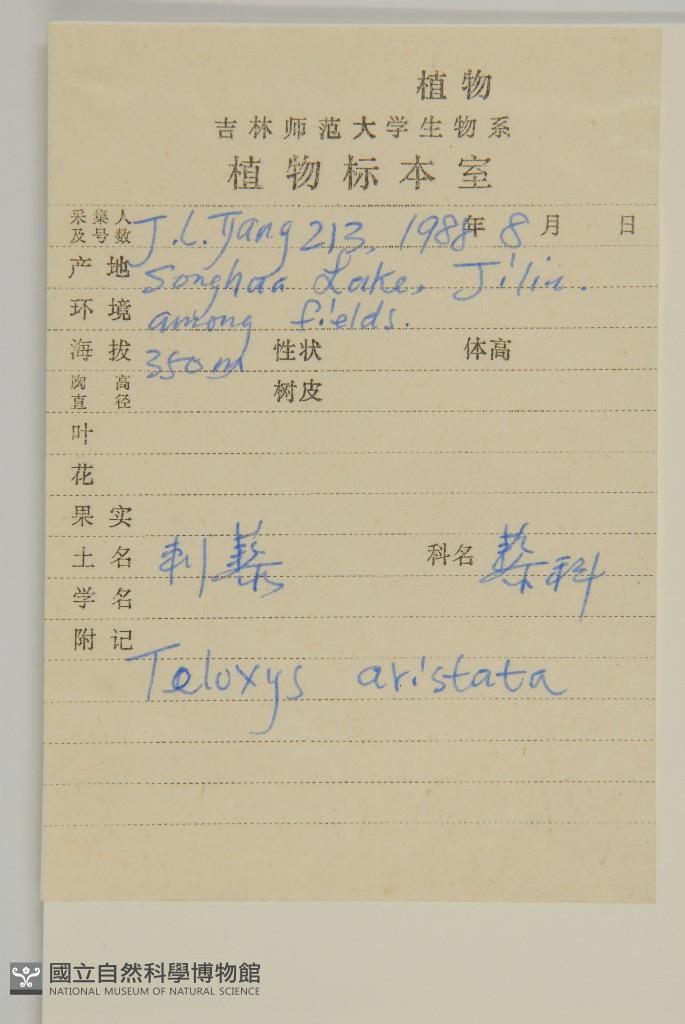 植物
吉林师范大学生物系
植物标本室
采集人及号数 J.L. Tjang 213, 1988年 8月 日
产地 Songhaa Lake, Jilin.
环境 among fields.
海拔 350m 性状 体高
胸高直径 树皮
叶
花
果实
土名 刺藜 科名 藜科
学名
附记
Teloxys aristata
國立自然科學博物館
NATIONAL MUSEUM OF NATURAL SCIENCE